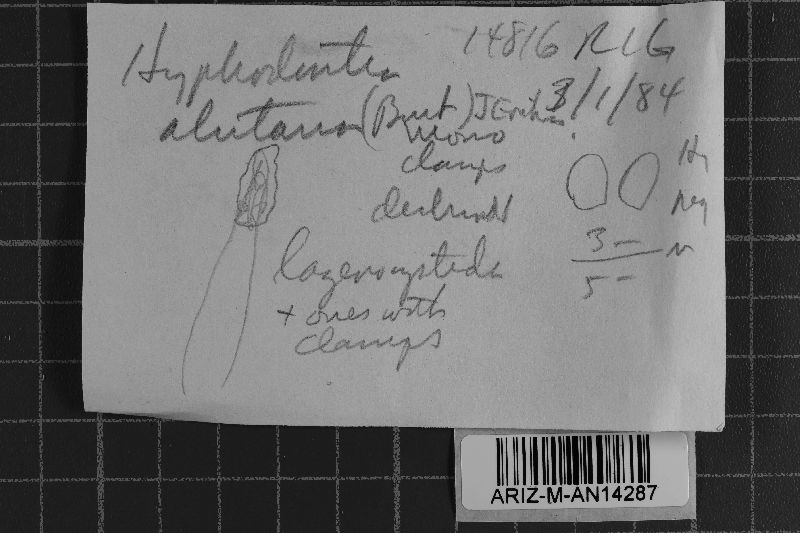 14816 RLG
Hyphodontia 3/1/84
alutaria (Burt) J Erikss.
mono
clamps
Hy
neg
lagenocystidia
3 –
5 –
+ ones with
clamps
ARIZ-M-AN14287